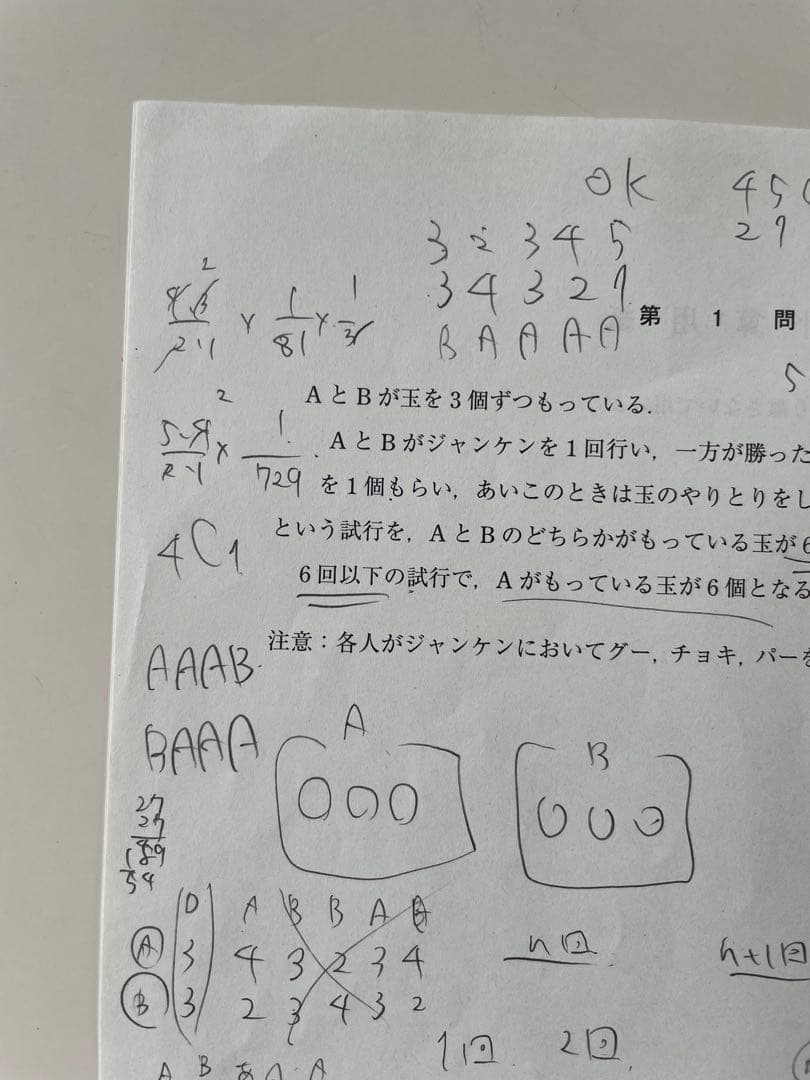 OK 4 5
2 1
3 2 3 4 5
3 4 3 2 1
B A A A A
第 1 問
5
2
× 1/81 × 1/3
2
5·4/2·1 × 1/729
4C1
AとBが玉を3個ずつもっている.
AとBがジャンケンを1回行い, 一方が勝った
を1個もらい, あいこのときは玉のやりとりをし
という試行を, AとBのどちらかがもっている玉が6
6回以下の試行で, Aがもっている玉が6個となる
注意：各人がジャンケンにおいてグー, チョキ, パーを
AAAB
BAAA
A
B
27
27
189
54
0 A B B A
A 3 4 3 2 3 4
B 3 2 3 4 3 2
n回 n+1回
1回 2回
A B あ A